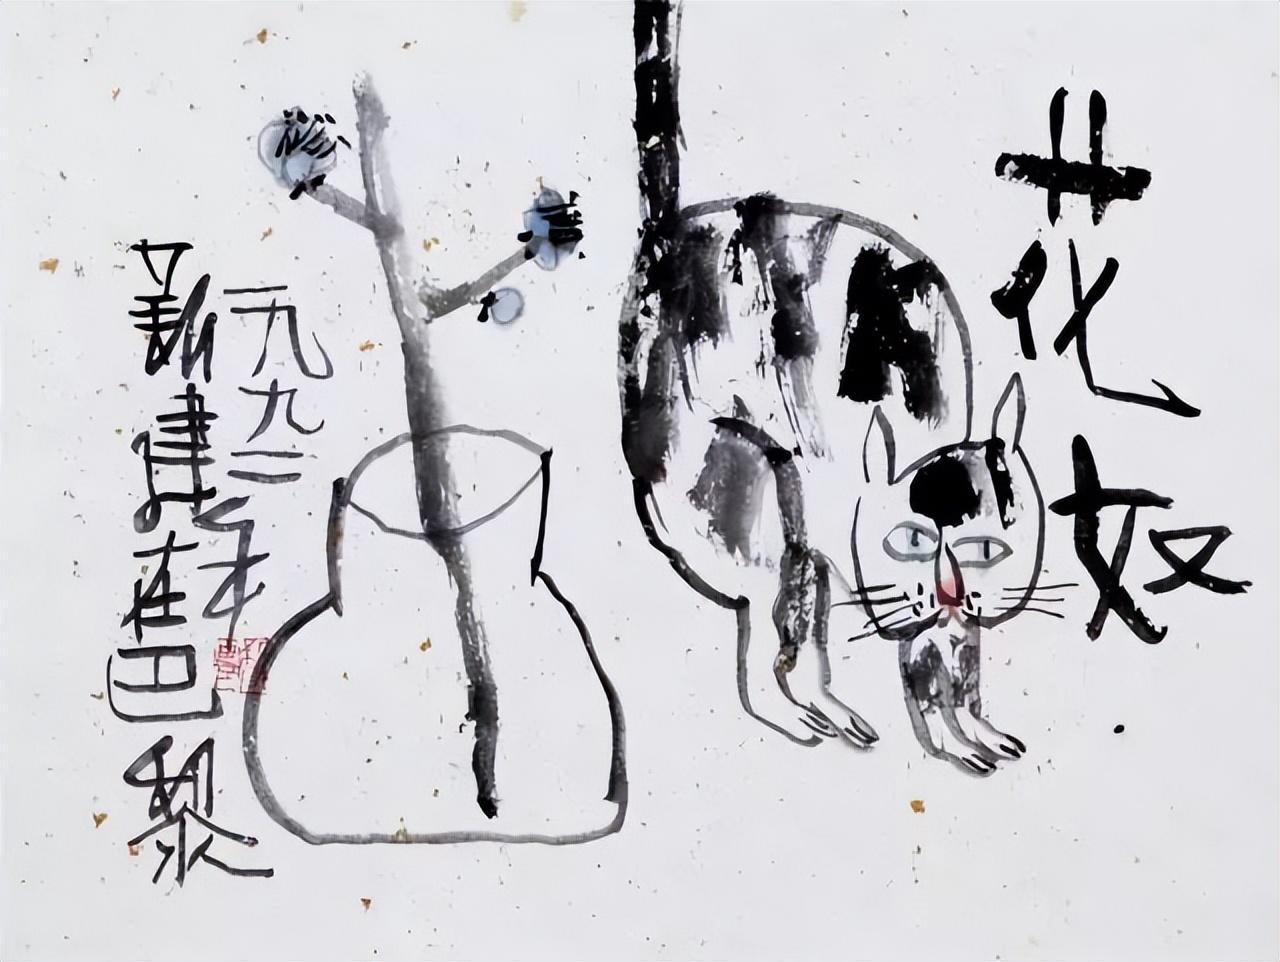 花奴
一九九二年
新建在巴黎